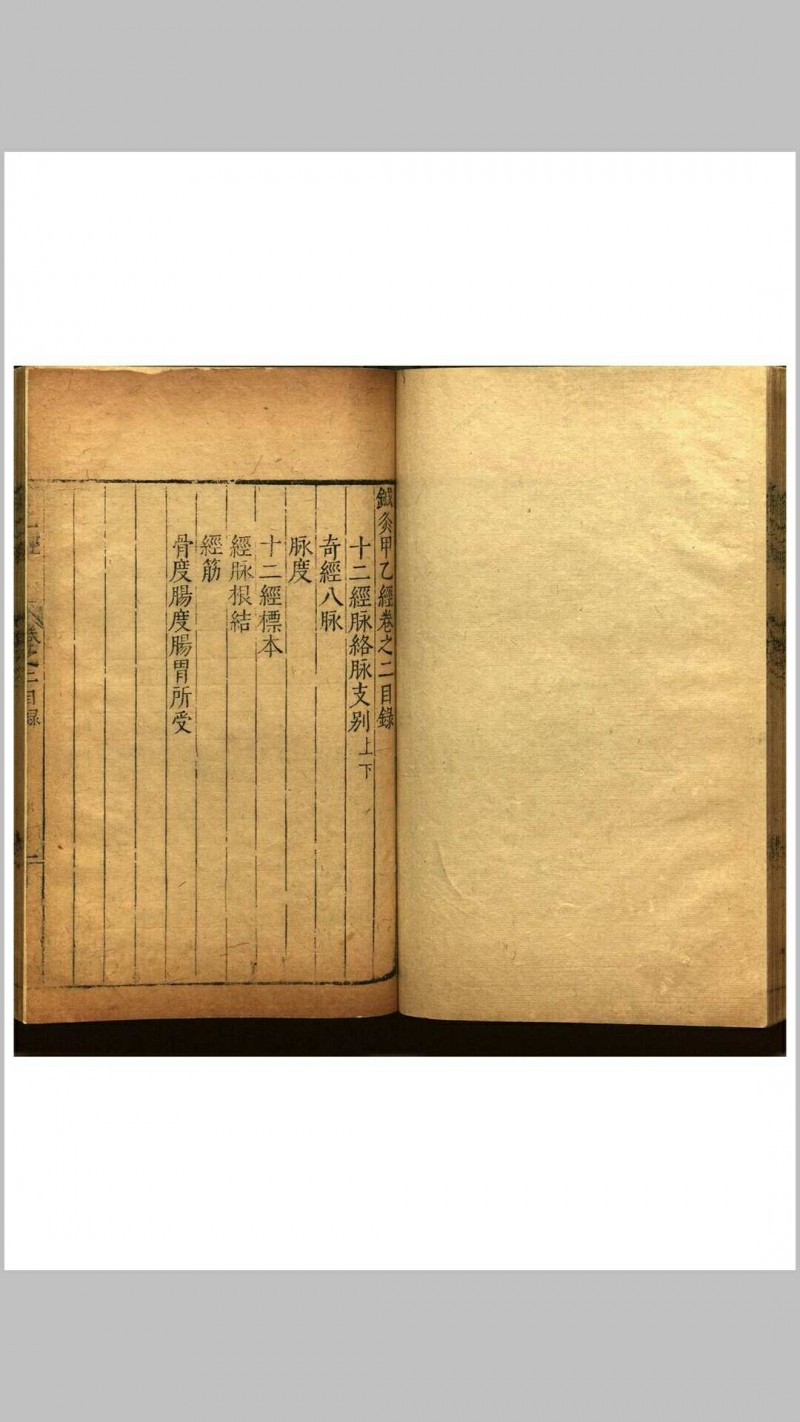 鍼灸甲乙經卷之二目錄
十二經脉絡脉支别上下
奇經八脉
脉度
十二經標本
經脉根結
經筋
骨度腸度腸胃所受
經
卷之二目録
一